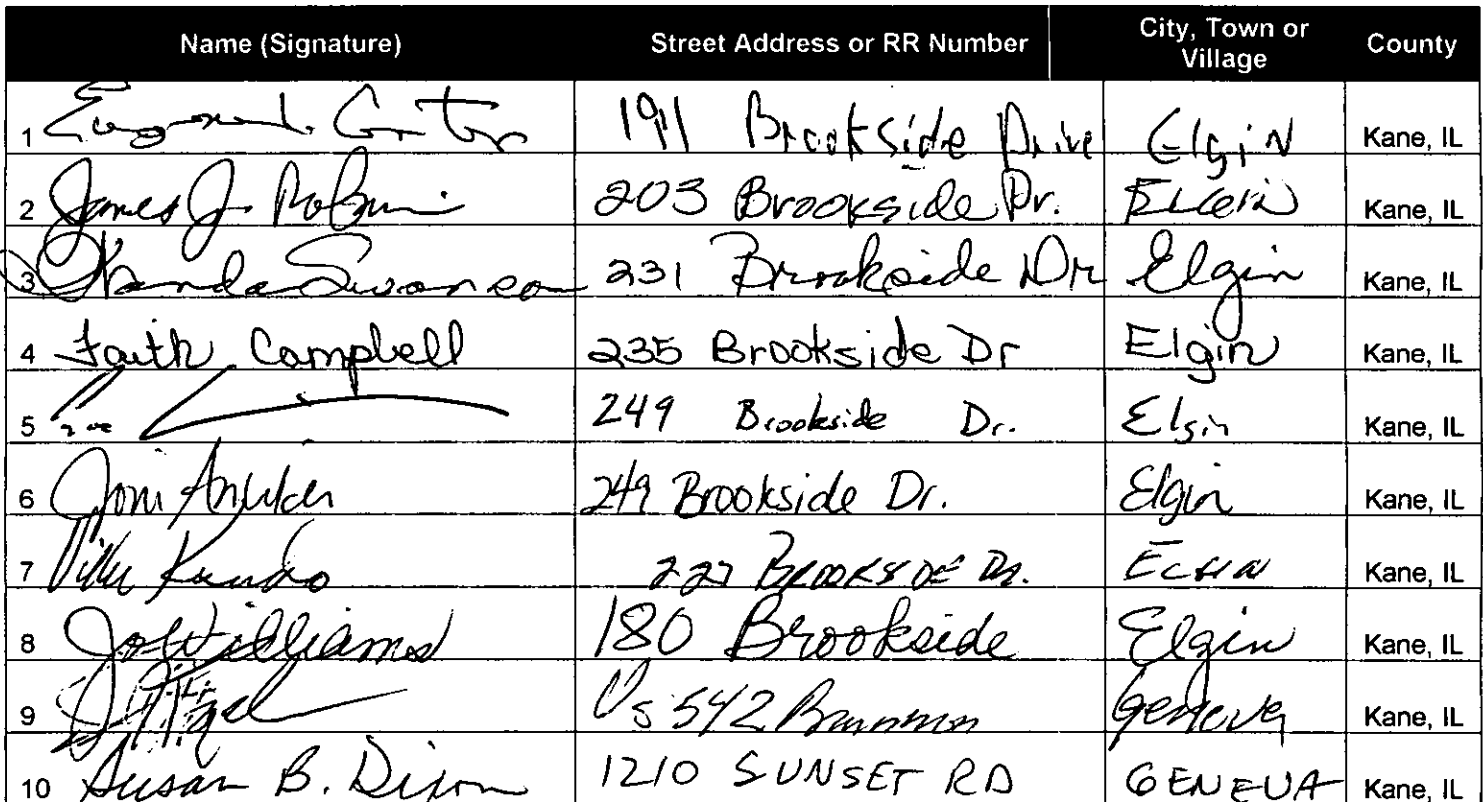 Name (Signature) Street Address or RR Number City, Town or Village County
1 191 Brookside Drive Elgin Kane, IL
2 James J. 203 Brookside Dr. Elgin Kane, IL
3 Wanda Swanson 231 Brookside Dr Elgin Kane, IL
4 Faith Campbell 235 Brookside Dr Elgin Kane, IL
5 249 Brookside Dr. Elgin Kane, IL
6 Joni 249 Brookside Dr. Elgin Kane, IL
7 227 Brookside Dr. Elgin Kane, IL
8 Jo Williams 180 Brookside Elgin Kane, IL
9 542 Geneva Kane, IL
10 Susan B. Dixon 1210 SUNSET RD GENEVA Kane, IL